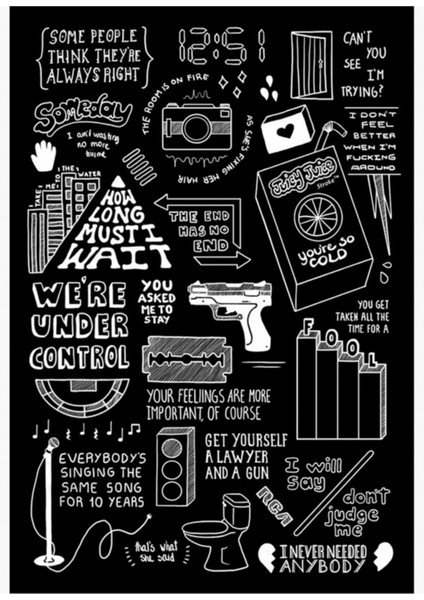 SOME PEOPLE
THINK THEY'RE
ALWAYS RIGHT
12:51
CAN'T
YOU
SEE
I'M
TRYING?
THE ROOM IS ON FIRE
AS SHE'S FIXING HER HAIR
Someday
I ain't wasting
no more
time
I DON'T
FEEL
BETTER
WHEN I'M
FUCKING
AROUND
TAKE ME TO THE WATER
HOW
LONG
MUST I
WAIT
THE END
HAS NO
END
JUICY JUICE
Stroke™
you're so
COLD
WE'RE
UNDER
CONTROL
YOU
ASKED
ME TO
STAY
YOU GET
TAKEN ALL THE
TIME FOR A
FOOL
YOUR FEELIINGS ARE MORE
IMPORTANT, OF COURSE
EVERYBODY'S
SINGING THE
SAME SONG
FOR 10 YEARS
GET YOURSELF
A LAWYER
AND A GUN
I will
say
don't
judge
me
RCA
that's what
she said
I NEVER NEEDED
ANYBODY